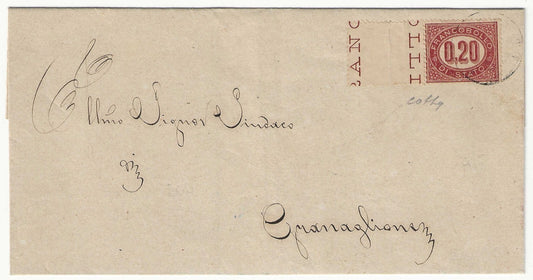 FRANCOBOLLO
0,20
DI STATO
Illmo Signor Sindaco
di
Granaglione